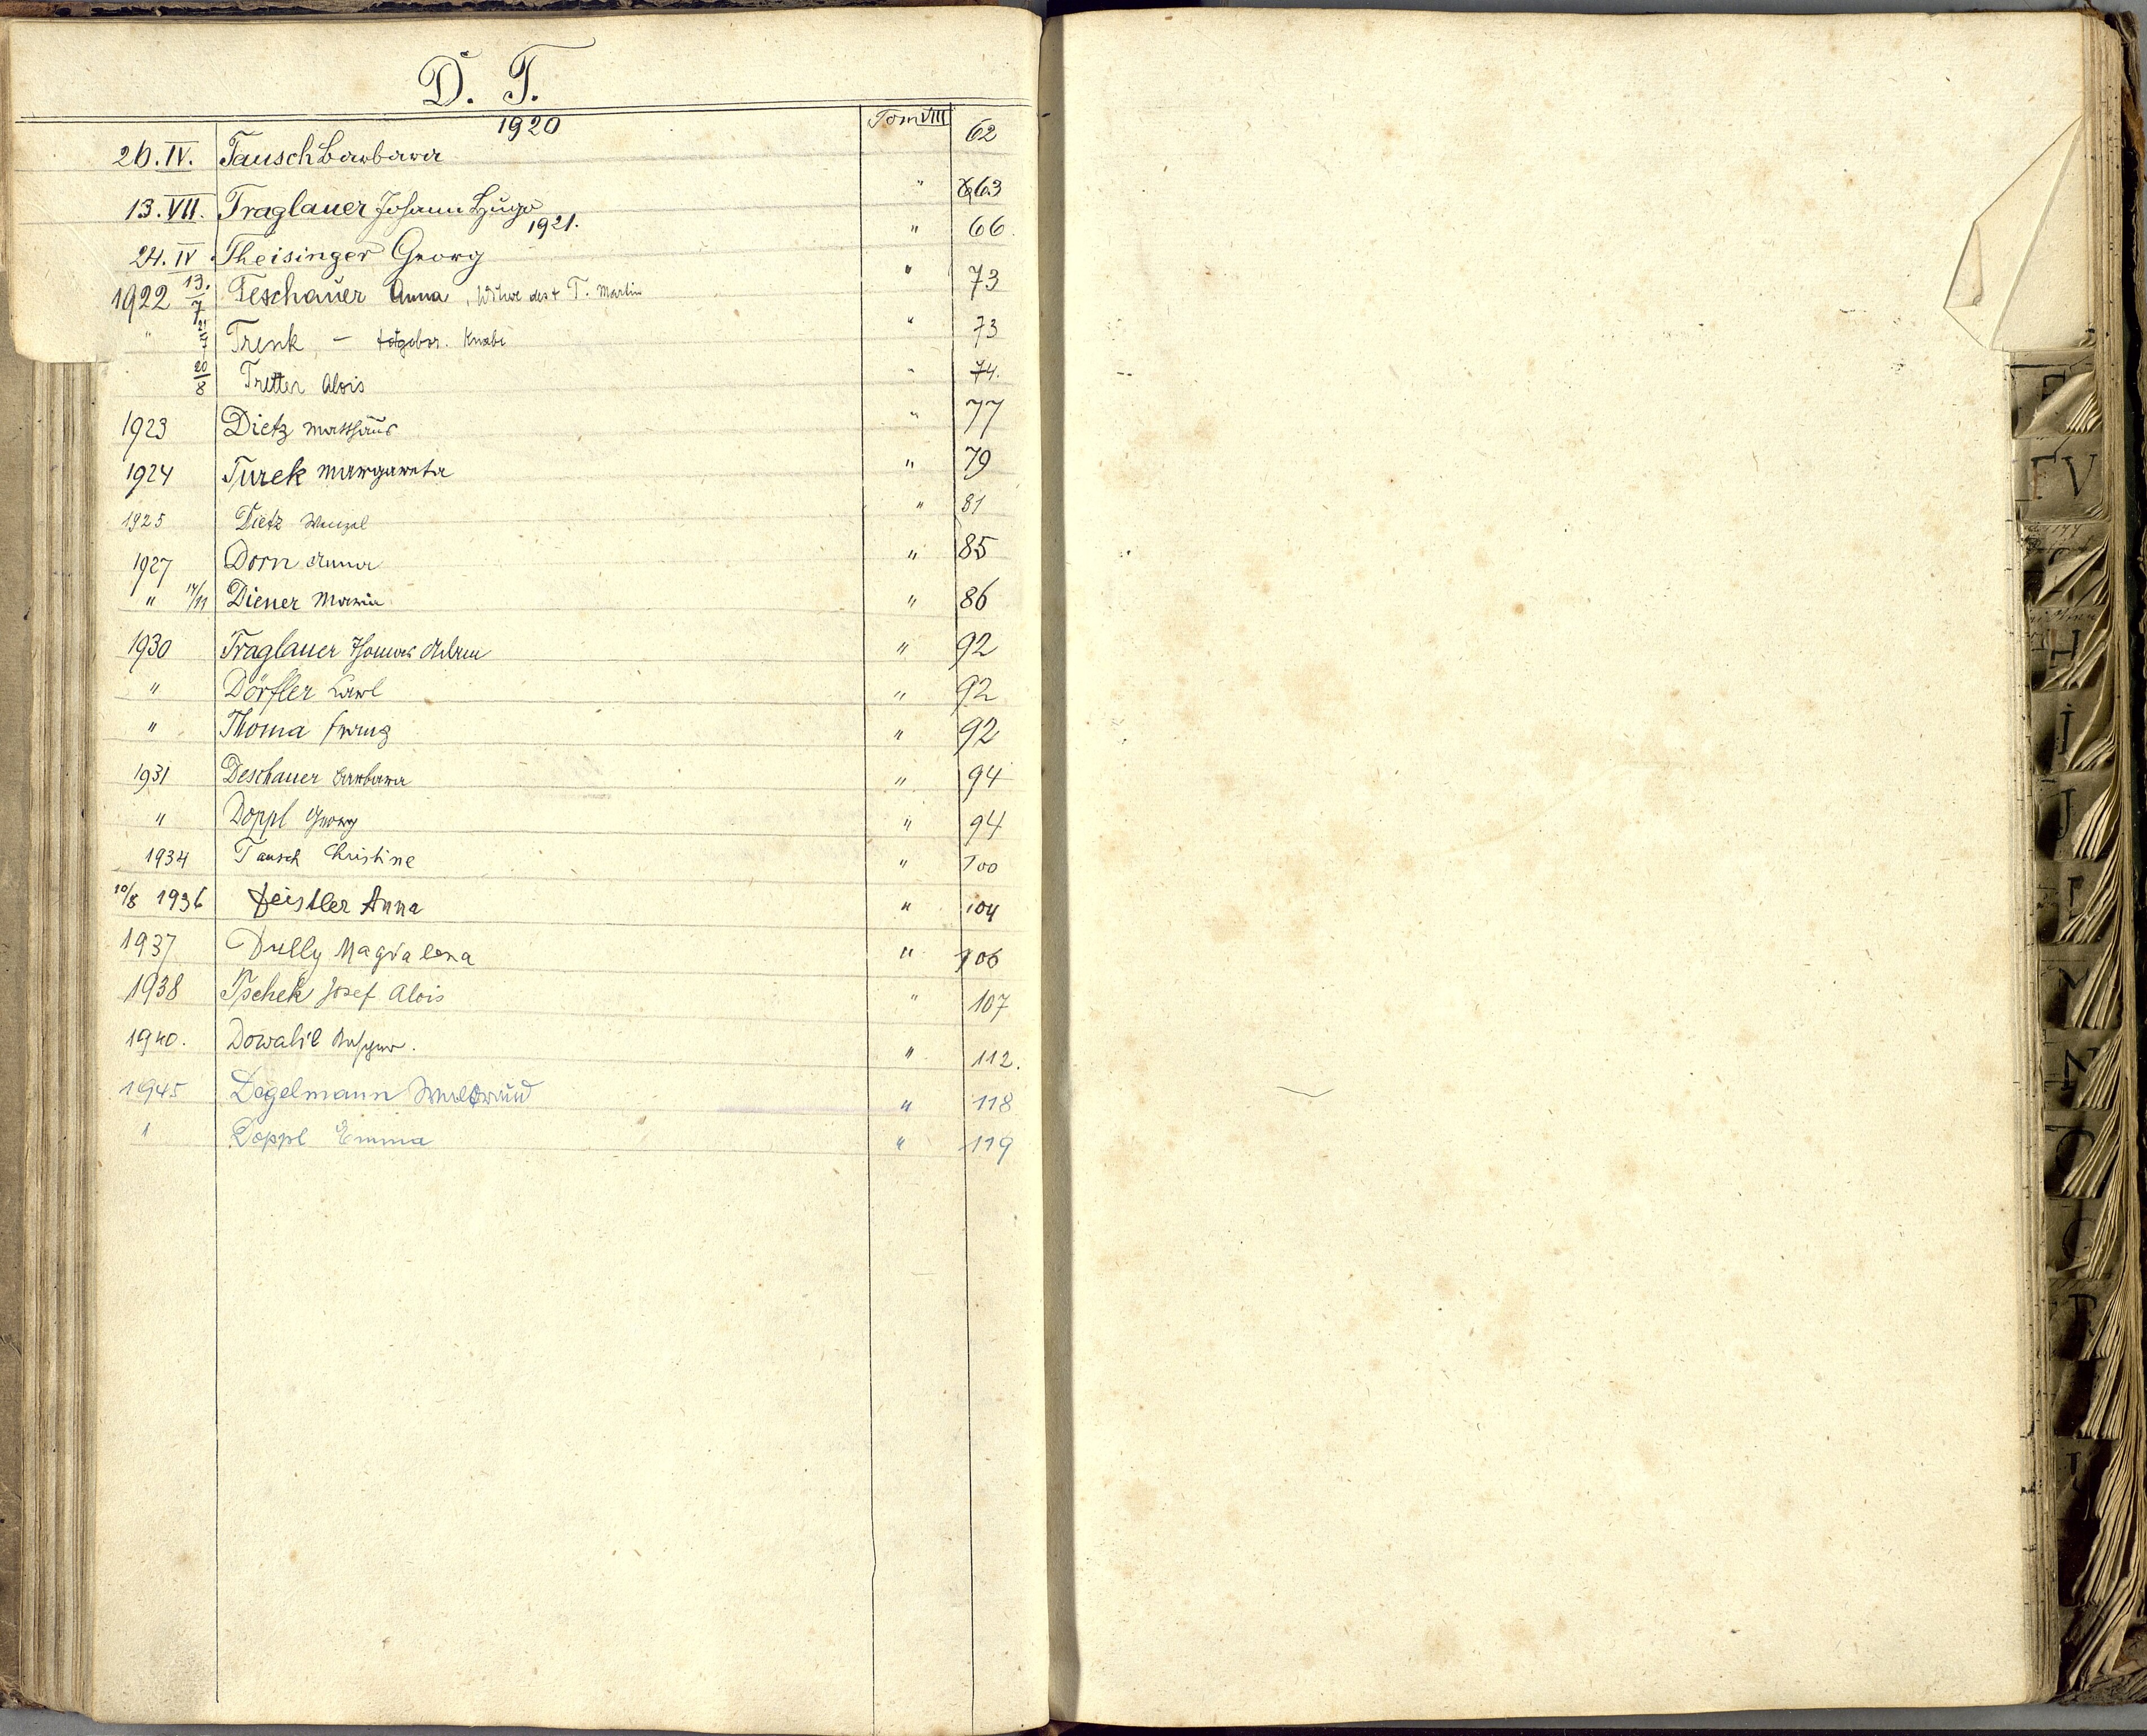 D. T.
1920 Tom VIII
26. IV. Tausch Barbara 62
13. VII. Traglauer Johann Hugo " 63
1921.
24. IV Theisinger Georg " 66.
1922 13./7 Teschauer Anna, Witwe des + T. Martin " 73
" 21/7 Trenk, – totgebor. Knabe " 73
20/8 Tretter Alois " 74.
1923 Dietz Matthäus " 77
1924 Turek Margareta " 79
1925 Dietz Wenzel " 81
1927 Dorn Anna " 85
" 14/11 Diener Maria " 86
1930 Traglauer Thomas Adam " 92
" Dörfler Karl " 92
" Thoma Franz " 92
1931 Deschauer Barbara " 94
" Doppl Georg " 94
1934 Tausch Christine " 100
10/8 1936 Anna " 104
1937 Dully Magdalena " 106
1938 Pschek Josef Alois " 107
1940. Dowalil " 112.
1945 Degelmann Waltraud " 118
Doppl Emma " 119
FV
H
I
J
L
M
N
O
R